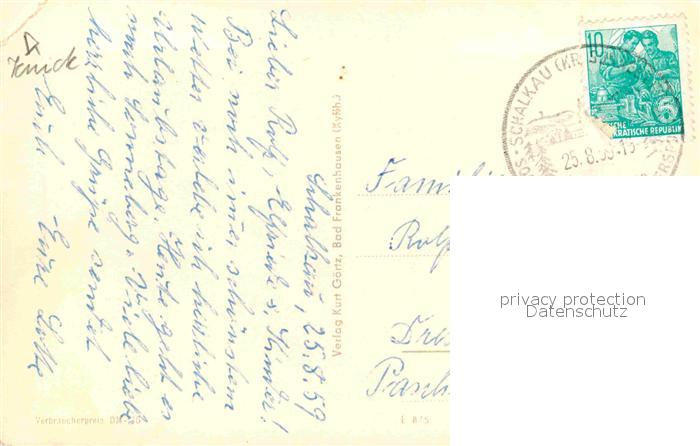 Knick
Schalkau, 25.8.59
Lieber Rolf, Elfriede u. Kinder!
Bei noch immer schönstem
Wetter verlebe ich herrliche
Urlaubstage. Heute geht es
nach Sonneberg. Viele liebe
herzliche Grüße sendet
Euch Eure Lotte
Verlag Kurt Görtz, Bad Frankenhausen (Kyffh.)
10
5
DEMOKRATISCHE REPUBLIK
SCHALKAU (KR.
25.8.59-13
Familie
Rolf
Dres
privacy protection
Datenschutz
Verbraucherpreis DM
E 875